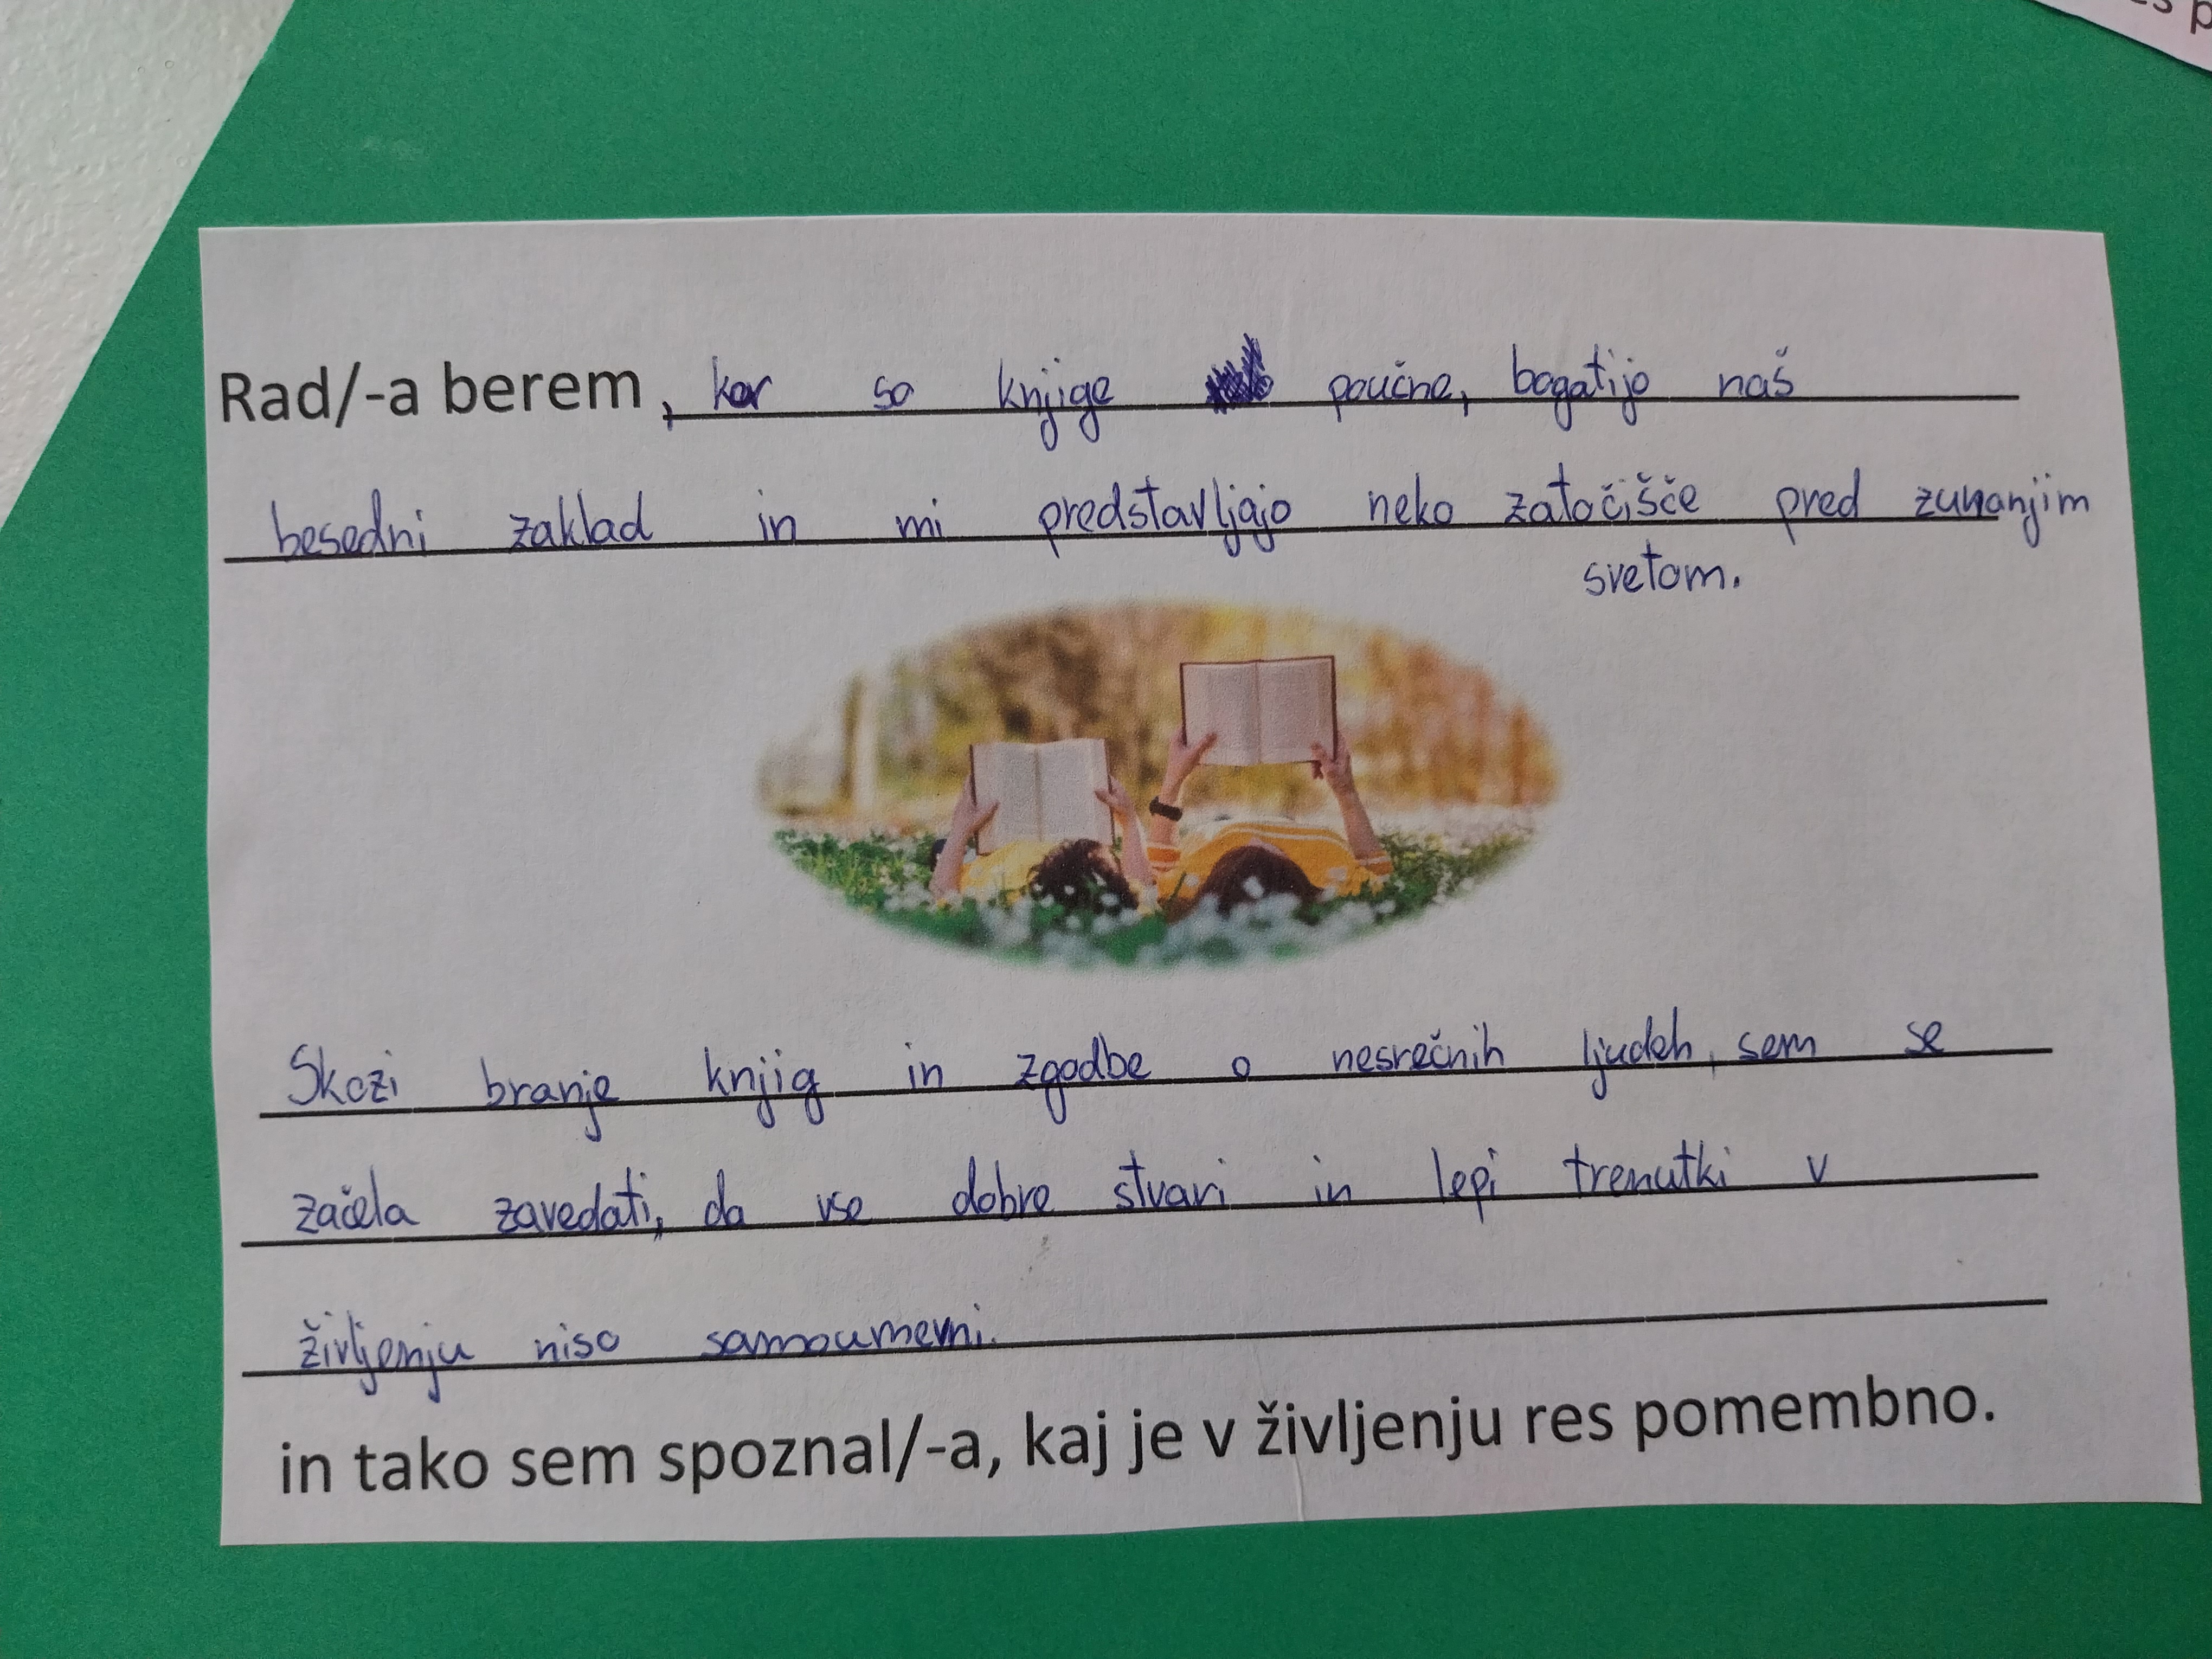 Rad/-a berem, ker so knjige poučne, bogatijo naš
besedni zaklad in mi predstavljajo neko zatočišče pred zunanjim
svetom.
Skozi branje knjig in zgodbe o nesrečnih ljudeh, sem se
začela zavedati, da vse dobre stvari in lepi trenutki v
življenju niso samoumevni.
in tako sem spoznal/-a, kaj je v življenju res pomembno.